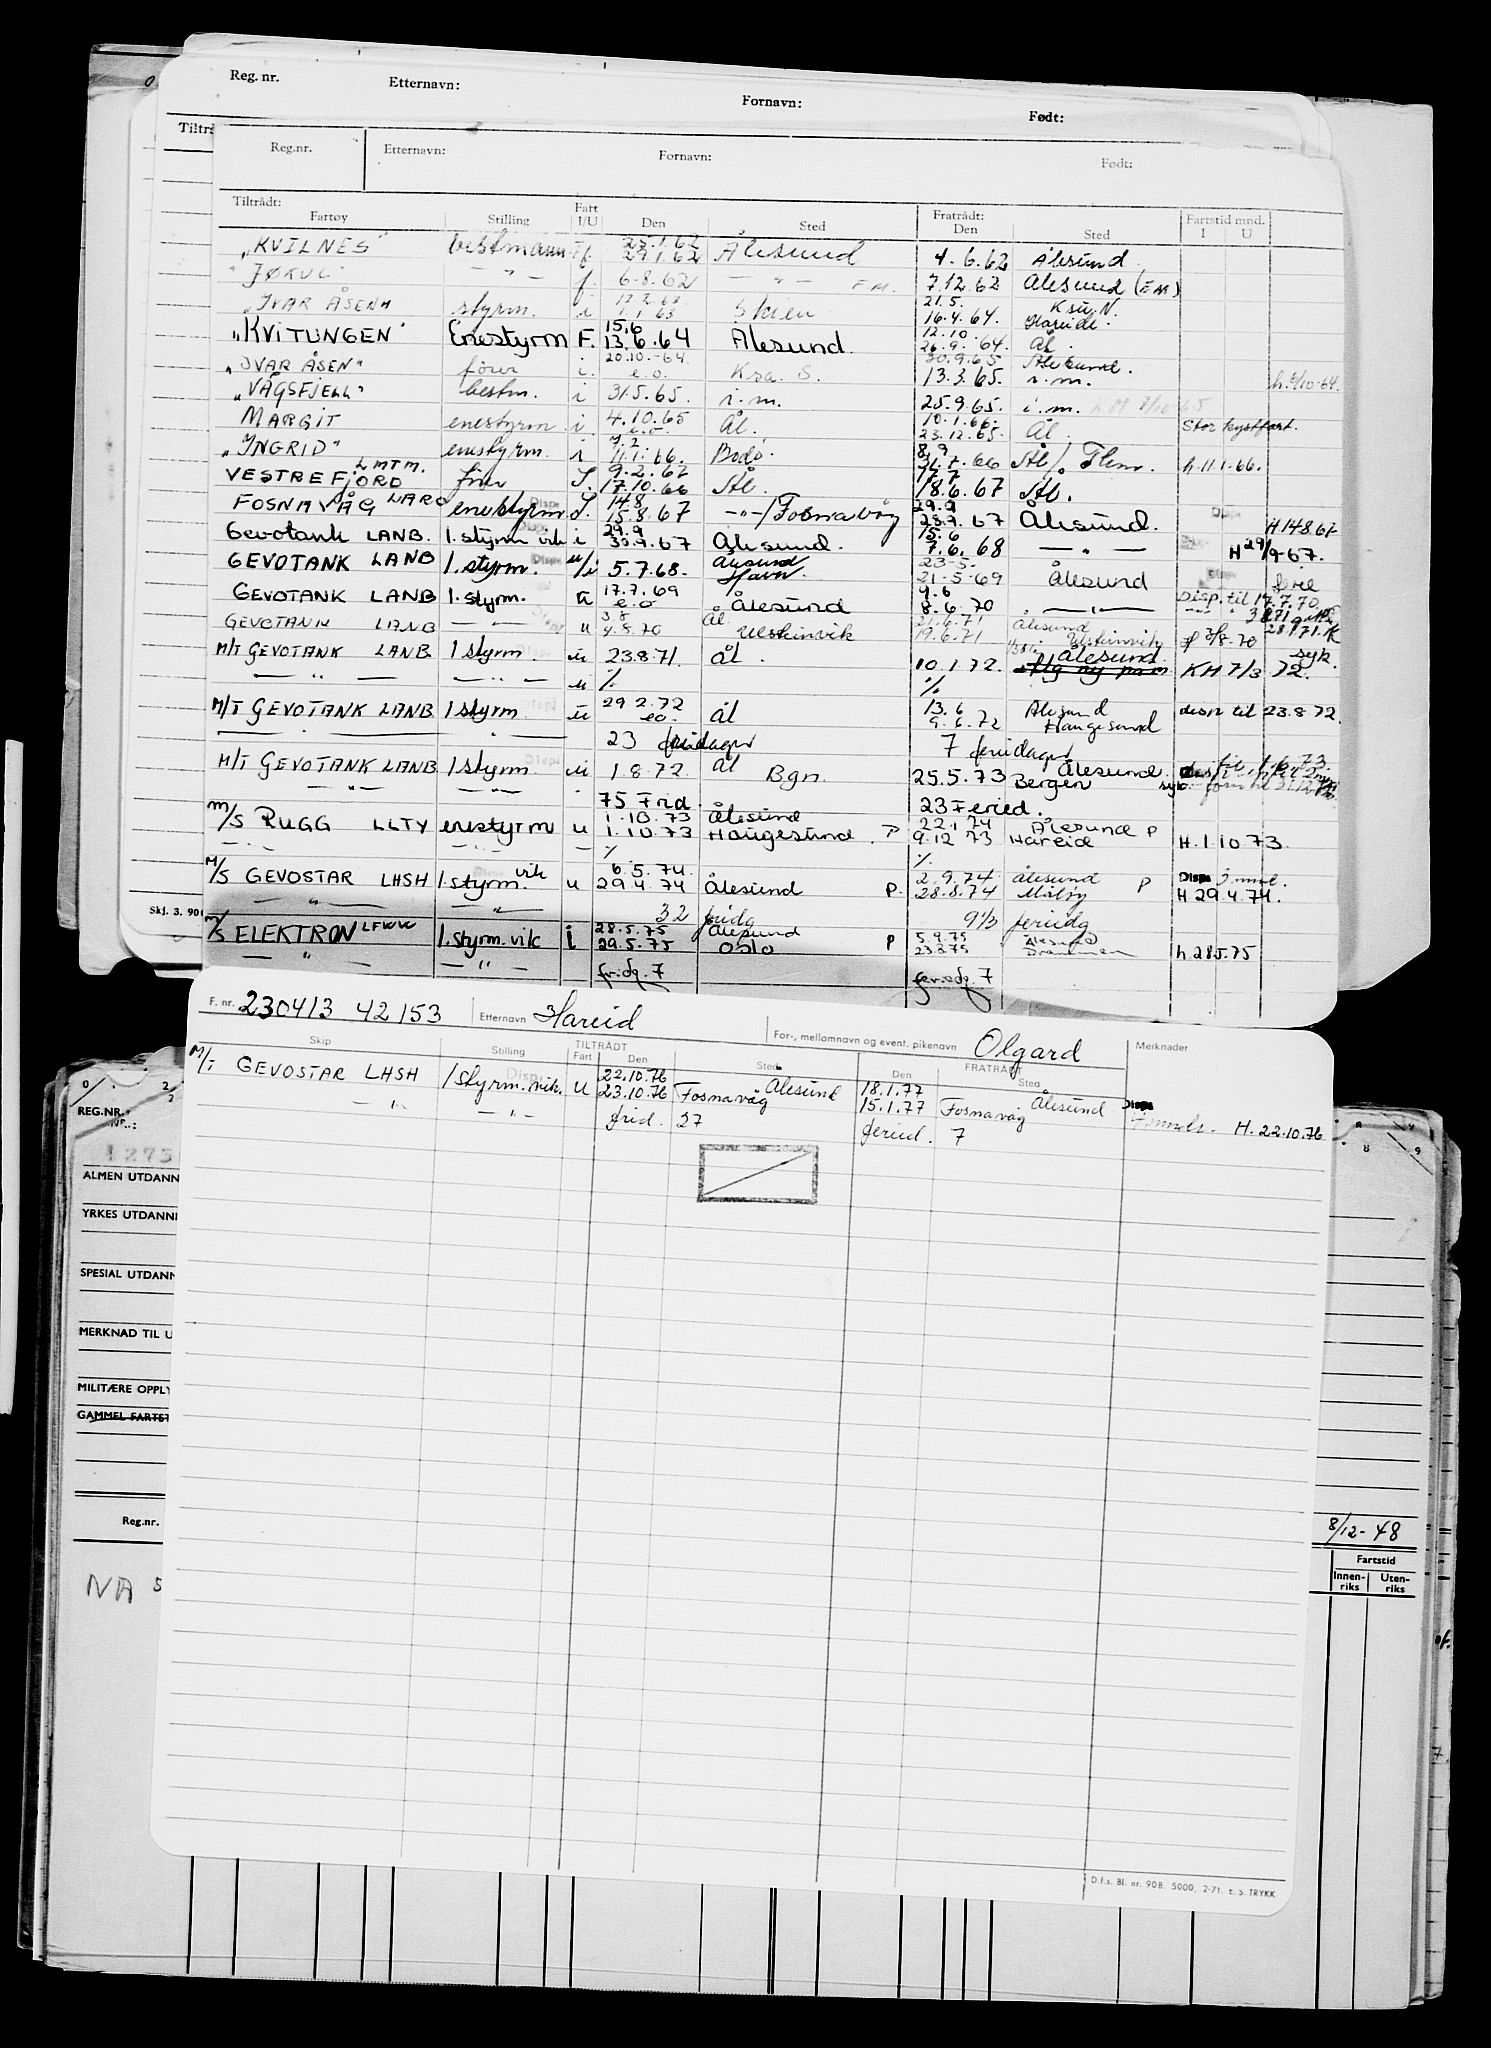 Reg. nr. Etternavn: Fornavn: Født:
Reg.nr. Etternavn: Fornavn: Født:
Tiltrådt: Fratrådt: Fartstid mnd.
Fartøy Stilling Fart I/U Den Sted Den Sted I U
"KVILNES" bestmann f. 29.1.62 Ålesund 4.6.62 Ålesund
"JØKUL" — " — f. 6.8.62 — " — F.M. 7.12.62 Ålesund (F.M)
21.5. Ksu. N.
"IVAR ÅSEN" styrm. i Skien 16.4.64. Hareide.
15.6 12.10
"KVITUNGEN" Enestyrm F. 13.6.64 Ålesund. 26.9.64. Ål.
20.10.-64. 20.9.65 Ålesund.
"IVAR ÅSEN" fører i. e.o. Kra. S. 13.3.65. i.m. h.5/10-64.
"VÅGSFJELL" bestm. i 31.5.65. i.m. 25.9.65. i.m.
MARGIT enestyrm. i 4.10.65 Ål. 10.1.66. Stor kystfart.
e.o. 23.12.65. Ål.
"INGRID" enestyrm. i 11.1.66. Bodø. 8.9 Ål/ h.11.1.66.
LMTM. 9.2.67 17.7
VESTREFJORD fører 17.10.66 Ål. 18.6.67 Ål.
14.8 29.9
FOSNAVÅG enestyrm 15.8.67 —"—/Fosnavåg 28.9.67 Ålesund. H 14.8.67
29.9 15.6
Gevotank LANB. 1. styrm vik i 30.9.67 Ålesund. 7.6.68 — " — H 29/9-67.
Ålesund 23-5-
GEVOTANK LANB 1. styrm. u/i 5.7.68. Havn. 21-5-69 Ålesund
17.7.69 9.6 Disp. til 17.7.70
GEVOTANK LANB 1. styrm. u e.o Ålesund 8.6.70 — " —
3.8 Ål. 21.6.71 Ålesund
GEVOTANK LANB — " — u 4.8.70 Ulsteinvik 19.6.71 Ulsteinvik 3/8-70
M/T GEVOTANK LANB 1 styrm. u 23.8.71. Ål. 10.1.72. Ålesund KM 7/3 72. syk.
— " — — " — u % %
29.2.72 13.6 Ålesund
M/T GEVOTANK LANB 1 styrm. u e.o. Ål 9.6.72 Haugesund disp til 23.8.72.
23 fridager 7 feriedager
M/T GEVOTANK LANB 1 styrm. u 1.8.72. Ål Bgn. 25.5.73 Ålesund. Bergen
75 Frid. 23 Feried.
1.10.73 Ålesund 22.1.74 Ålesund P
M/S RUGG LLTY enestyrm u 1.10.73 Haugesund. P 9.12 73 Hareid H.1.10.73.
% %
6.5.74. 2.9.74 Ålesund P Disp 3 mnd.
M/S GEVOSTAR LHSH 1. styrm. vik u 29.4.74 Ålesund P. 28.8.74 Måløy H 29.4.74.
— " — — " — 32 fridg 9 1/3 feriedg
28.5.75 Ålesund 5.9.75 Ålesund
M/S ELEKTRON LFKW 1. styrm. vik i 29.5.75 Oslo P Drammen h.28.5.75
— " — — " — fridg. 7 feriedg 7
Skj. 3. 90
F. nr. 230413 42153 Etternavn Hareid For-, mellomnavn og event. pikenavn Olgard
TILTRÅDT FRATRÅDT Merknader
Skip Stilling Fart Den Sted Den Sted
22.10.76 Ålesund 18.1.77 Ålesund Disp
M/T GEVOSTAR LHSH 1 styrm. vik. u 23.10.76 Fosnavåg 15.1.77 Fosnavåg H. 22.10.76
— " — — " — frid. 27 feried. 7
D.f.s. Bl. nr. 908. 5000, 2-71. E. S. TRYKK
REG.NR.:
ALMEN UTDANN
YRKES UTDANN
SPESIAL UTDANN
MERKNAD TIL U
MILITÆRE OPPLY
GAMMEL FARTST
Reg.nr.
NA 5
8/12-48
Fartstid
Innen-riks Uten-riks